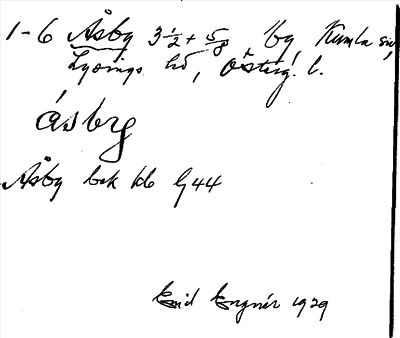 1-6 Åsby 3 1/2 + 5/8 by, Kumla sn,
Lysings hd, Österg. l.
åsby
Åsby bek kb G44
Emid Engnér 1929